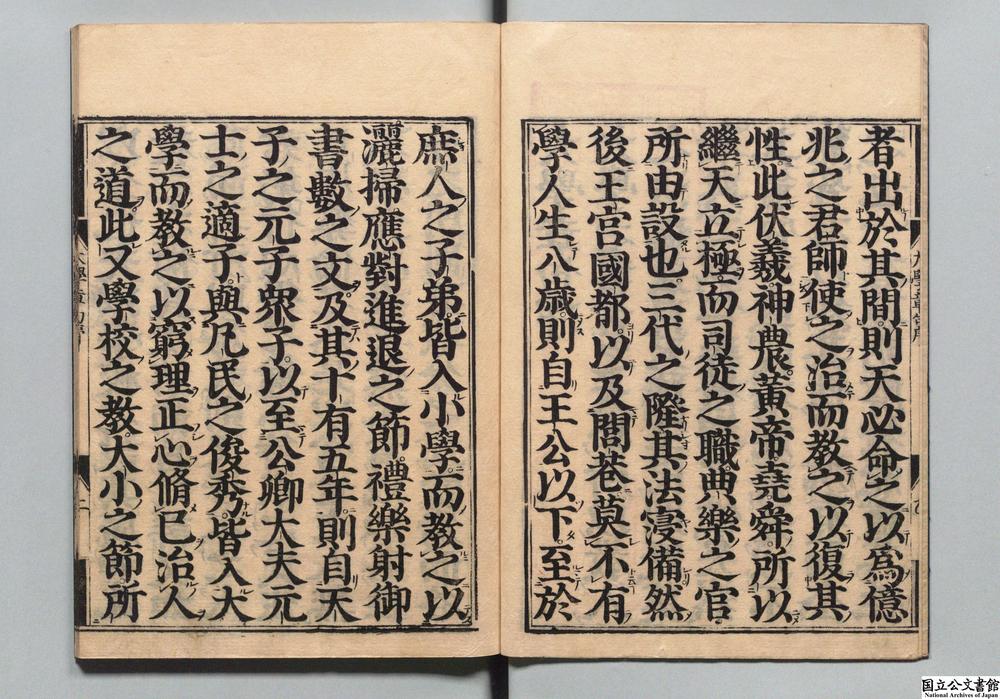 者出於其間則天必命之以爲億
兆之君師使之治而教之以復其
性此伏羲神農黃帝堯舜所以
繼天立極而司徒之職典樂之官
所由設也三代之隆其法寖備然
後王宮國都以及閭巷莫不有
學人生八歲則自王公以下至於
庶人之子弟皆入小學而教之以
灑掃應對進退之節禮樂射御
書數之文及其十有五年則自天
子之元子衆子以至公卿大夫元
士之適子與凡民之俊秀皆入大
學而教之以窮理正心脩己治人
之道此又學校之教大小之節所
国立公文書館
National Archives of Japan